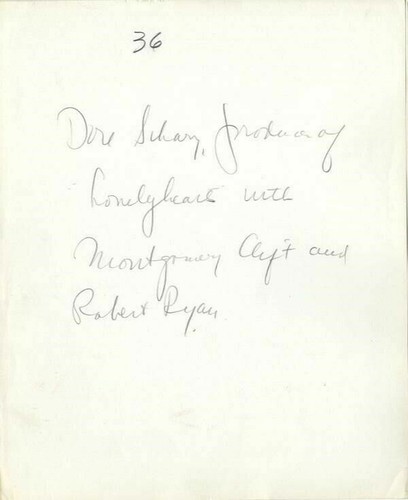 36
Dore Schary, producer of
Lonelyhearts with
Montgomery Clift and
Robert Ryan